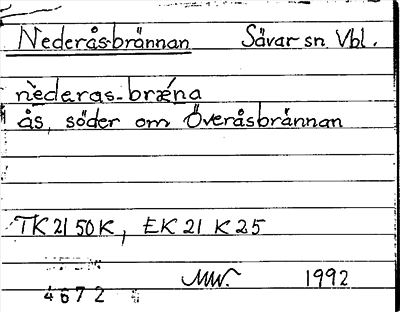 Nederåsbrännan Sävar sn. Vbl.
nèderas-brǽna
ås, söder om Överåsbrännan
TK 21 50 K, EK 21 K 25
MW. 1992
4672